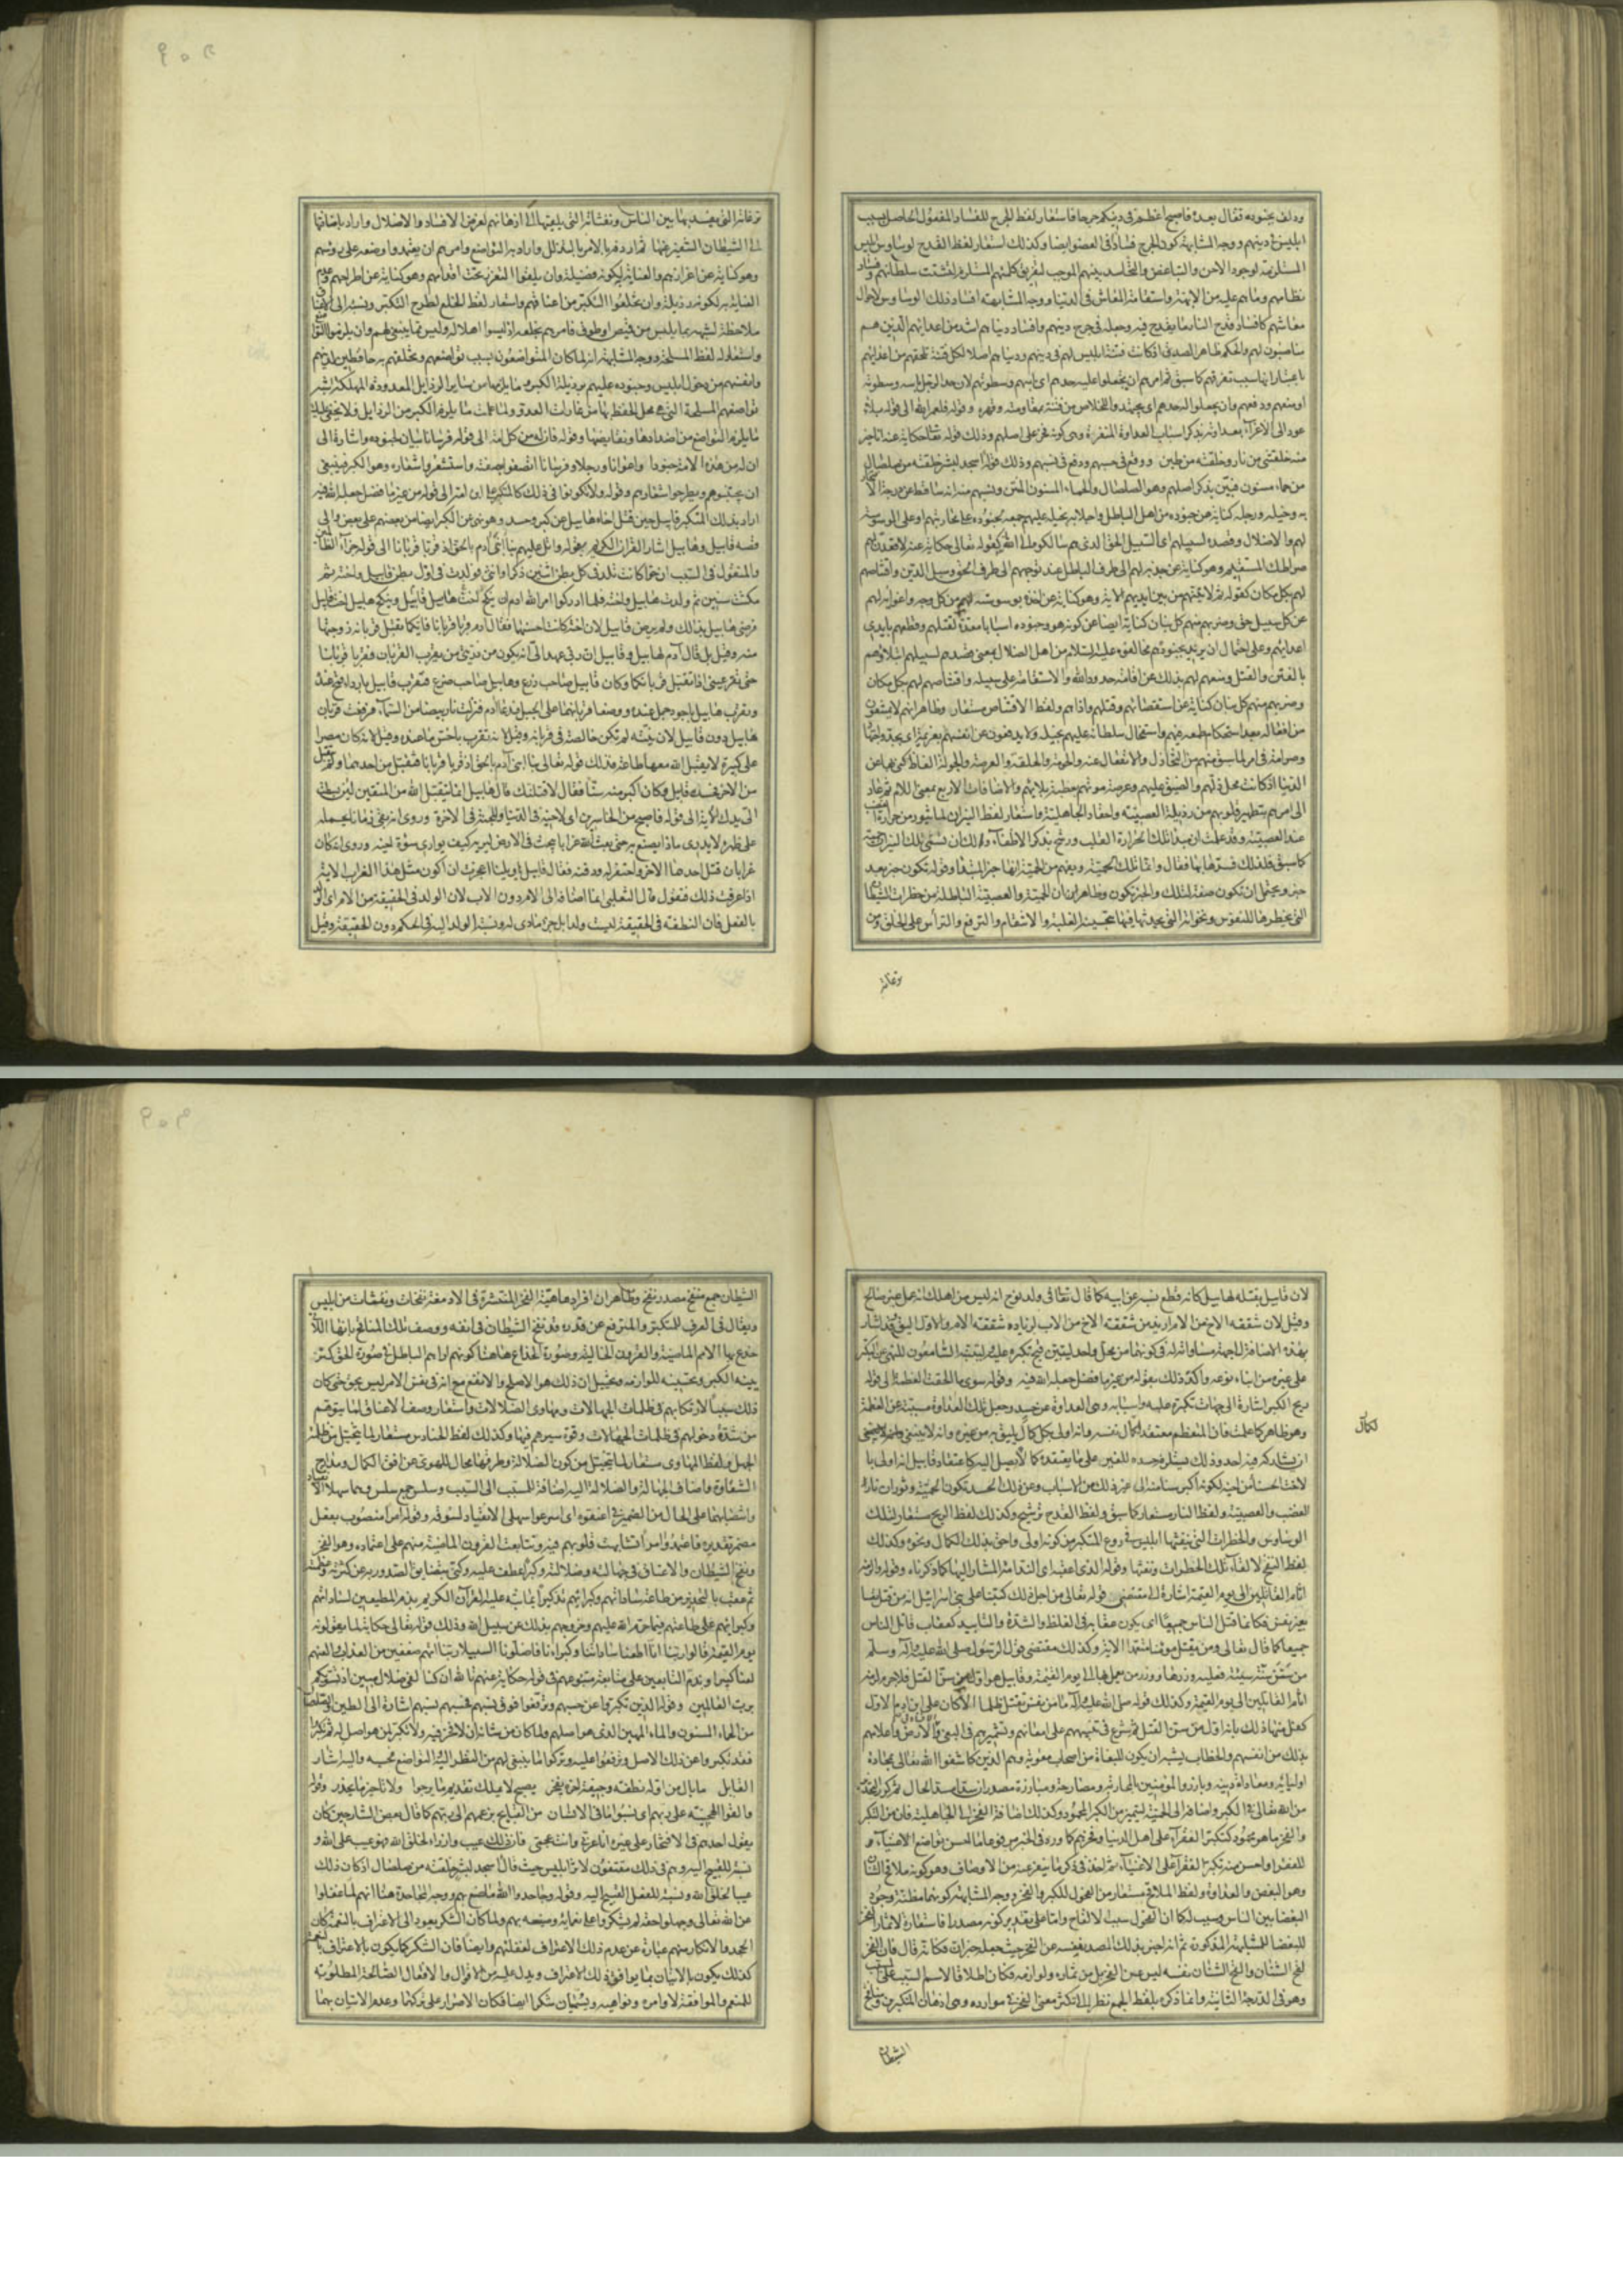 ودلف بجنوده فقال بعده فاصبح اعظم فى دينكم جرحا فاستعار لفظ الجرح للفساد المعقول الحاصل بسبب
ابليس فى دينهم ووجه المشابهة كون الجرح فسادا فى العضو ايضا وكذلك استعار لفظ القدح لوساوس ابليس
المستلزمة لوجود الاحن والتباغض والتحاسد بينهم الموجب لتفريق كلمتهم المستلزم لتشتت سلطانهم وفساد
نظامهم وما هم عليه من الابهة واستقامة المعاش فى الدنيا ووجه المشابهة افساد ذلك الوساوس لاحوال
معاشهم كافساد قدح النار ما يقدح فيه وجعله فى جرح دينهم وافساد دنياهم اشد من اعدائهم الذين هم
مناصبون لهم والحكم ظاهر الصدق اذ كانت فتنة ابليس لهم فى دينهم ودنياهم اصلا لكل فتنة تلحقهم من اعدائهم
باعتبار انها سبب تفرقهم كما سبق ثم امرهم ان يجعلوا عليه حدهم اى باسهم وسطوتهم لان حد الرجل باسه وسطوته
او منعهم ودفعهم وان يجعلوا له جدهم اى يجتهدوا للخلاص من فتنته بمقاومته وقهره وقوله فلعمر الله الى قوله بلاء
عود الى الاغراء بعداوته بذكر اسباب العداوة المنفرة وهى كونه فخر على اصلهم وذلك قوله تعالى حكاية عنه انا خير
منه خلقتنى من نار وخلقته من طين ووقع فى حسبهم ودفع فى نسبهم وذلك قوله أاسجد لبشر خلقته من صلصال
من حماء مسنون فبين بذكر اصلهم وهو الصلصال والحماء المسنون المنتن ونسبهم منه انه ساقط عن درجة
به وخيله ورجله كناية عن جنوده من اهل الباطل واجلابه بخيله عليهم جمعه لجنوده على محاربتهم او على الوسوسة
لهم والاضلال وقصده لسبيلهم اى السبيل الحق الذى هم سالكوه الى الله كقوله تعالى حكاية عنه لاقعدن لهم
صراطك المستقيم وهو كناية عن جذبه لهم الى طرف الباطل عند توجههم الى طرف الحق وسبيل الدين واقتناصهم
لهم بكل مكان كقوله ثم لاتينهم من بين ايديهم الاية وهو كناية عن اخذه بوسوسته لهم من كل وجه واغوائه لهم
عن كل سبيل حق وضربهم منهم كل بنان كناية ايضا عن كونه هو وجنوده اسبابا معدة لقتلهم وقطعهم بايدى
اعدائهم وعلى احتمال ان يريد بجنوده مخالفوه عليه السلام من اهل الضلال بمعنى قصدهم لسبيلهم ابتلاؤهم
بالفتن والقتل ومنعهم لهم بذلك عن اقامة حدود الله والاستقامة على سبيله واقتناصهم لهم بكل مكان
وضربهم منهم كل بنان كناية عن استقصائهم وقتلهم واذاهم ولفظ الاقتناص مستعار وظاهر انهم لا يمتنعون
من افعاله بعد استحكام طمعه فيهم واستفحال سلطانه عليهم بحيلة ولا يدفعون عن انفسهم بعزيمة اى بجد واجتهاد
وصرامة فى امر لما سبق منهم من التخاذل والانفعال عنه والحومة والحلقة والعرصة والجولة الفاظ كنى بها عن
الدنيا اذ كانت محل ذلهم والضيق عليهم وعرصة موتهم مظنة بلائهم والاضافات الاربع بمعنى اللام ثم عاد
الى امرهم بتطهير قلوبهم من رذيلة العصبية واحقاد الجاهلية واستعار لفظ النيران لما يثور من حرارة الغضب
عند العصبية وقد علمت ان مبدا تلك الحرارة القلب ورشح بذكر الاطفاء ولك ان تسمى تلك النيران حمية
كما سبق فلذلك فسرها بها فقال وانما تلك الحمية ويفهم من الحمية انها خبر المبتدا وقوله تكون خبر بعد
خبر ويحتمل ان تكون صفة لتلك والخبر تكون وظاهر ان الحمية والعصبية الباطلة من خطرات الشيطان
التى يخطرها للنفوس ونخواته التى يحدثها فيها بتحسين الغلبة والانتقام والترفع والتراس على الخلق ومن
نزغاته
نزغاته التى يفسد بها بين الناس ونفثاته التى يلقيها الى اذهانهم لغرض الافساد والاضلال واراد باضافتها
الى الشيطان التنفير عنها ثم اردفه بالامر بالتذلل واراد به التواضع وامرهم ان يعتمدوا وضعه على رؤسهم
وهو كناية عن اعزازهم والعناية به لكونه فضيلة وان يلقوا التعزز تحت اقدامهم وهو كناية عن اطراحهم وعدم
العناية به لكونه رذيلة وان يخلعوا التكبر من اعناقهم واستعار لفظ الخلع لطرح التكبر ونسبه الى الاعناق
ملاحظة لشبهه بما يلبس من قميص او طوق فامرهم بخلعه اذ ليسوا اهلا له وليس مما ينبغى لهم وان يلزموا التواضع
واستعار له لفظ المسلحة ووجه المشابهة انه لما كان المتواضعون بسبب تواضعهم وتخلقهم به حافظين لدينهم
وانفسهم من دخول ابليس وجنوده عليهم برذيلة الكبر وما يلزمها من ساير الرذايل المعدودة المهلكة اشبه
تواضعهم المسلحة التى هى محل التحفظ بها من غارات العدو ولما علمت ما يلزم الكبر من الرذايل فلا يخفى عليك
ما يلزم التواضع من اضدادها ونقايضها وقوله فان له من كل امة الى قوله فرسانا بيان لجنوده واشارة الى
ان له من هذه الامة جنودا واعوانا ورجلا وفرسانا اتصفوا بصفته واستشعروا شعاره وهو الكبر فينبغى
ان يجتنبوهم ويطرحوا شعارهم وقوله ولا تكونوا فى ذلك كالمتكبر على ابن امه الى قوله من غير ما فضل جعله الله فيه
اراد بذلك المتكبر قابيل حين قتل اخاه هابيل عن كبر وحسد وهو نهى عن الكبر ايضا من بعضهم على بعض والى
قصة قابيل وهابيل اشار القران الكريم بقوله واتل عليهم نبأ ابنى آدم بالحق اذ قربا قربانا الى قوله جزاء الظالمين
والمنقول فى السبب ان حوا كانت تلد فى كل بطن اثنين ذكرا وانثى فولدت فى اول بطن قابيل واخته ثم
مكثت سنين ثم ولدت هابيل واخته فلما ادركوا امر الله ادم ان ينكح اخت هابيل قابيل وينكح هابيل اخت قابيل
فرضى هابيل بذلك ولم يرض قابيل لان اخته كانت احسنهما فقال ادم قربا قربانا فايكما تقبل قربانه زوجتها
منه وقيل بل قال آدم لهابيل وقابيل ان ربى عهد الى انه يكون من ذريتى من يقرب القربان فقربا قربانا
حتى تقر عينى اذا تقبل قربانكما وكان قابيل صاحب زرع وهابيل صاحب ضرع فتقرب قابيل باردا قمح عنده
وتقرب هابيل باجود حمل عنده ووضعا قربانهما على الجبل فدعا آدم فنزلت نار بيضا من السماء فرفعت قربان
هابيل دون قابيل لان نيته لم تكن خالصة فى قربانه وقيل لانه تقرب باخس ما عنده وقيل لانه كان مصرا
على كبيرة لا يقبل الله معها طاعة فذلك قوله تعالى نبأ ابنى آدم بالحق اذ قربا قربانا فتقبل من احدهما ولم يتقبل
من الاخر فحسده قابيل وكان اكبر منه سنا فقال لاقتلنك قال هابيل انما يتقبل الله من المتقين لئن بسطت
الى يدك الاية الى قوله فاصبح من الخاسرين اى لاجنبه فى الدنيا وللجنة فى الاخرة وروى انه بقى زمانا يحمله
على ظهره لا يدرى ماذا يصنع به حتى بعث الله غرابا يبحث فى الارض ليريه كيف يوارى سوءة اخيه وروى انه كان
غرابان قتل احدهما الاخر واحتفر له ودفنه فقال قابيل يا ويلتا اعجزت ان اكون مثل هذا الغراب الاية
اذا عرفت ذلك فنقول قال الثعلبى انما اضافه الى الام دون الاب لان الولد فى الحقيقة من الام اى الولد
بالفعل فان النطفة فى الحقيقة ليست ولدا بل جزء مادى له ونسبة الولد اليه فى الحكم دون الحقيقة وقيل
لان قابيل بقتله لهابيل كانه قطع نسبه عن ابيه كما قال تعالى فى ولد نوح انه ليس من اهلك انه عمل غير صالح
وقيل لان شفقة الاخ من الام ازيد من شفقة الاخ من الاب لزيادة شفقة الام والاول اليق فقد اشار
بهذه الاضافة الى جهة مساواته له فى كونهما من محل واحد ليتبين قبح تكبره عليه فيتنبه السامعون للنهى عن التكبر
على غيره من ابناء نوعه واكد ذلك بقوله من غير ما فضل جعله الله فيه وقوله سوى ما الحقت العظمة الى قوله
ريح الكبر اشارة الى جهات تكبره عليه واسبابه وهى العداوة عن حسد وجعل تلك العداوة مسببة عن العظمة
وهو ظاهر كما علمت فان المتعظم معتقد لكمال نفسه وانه اولى بكل كمال يليق به من غيره وانه لا ينبغى
ان يشاركه فيه احد وذلك يستلزم حسده للغير على ما يعتقده كمالا يصل اليه كاعتقاد قابيل انه اولى با
لاخت الحسنا من اخيه لكونه اكبر سنا منه الى غير ذلك من الاسباب وعن ذلك الحسد تكون الحمية وثوران نار
الغضب والعصبية ولفظ النار مستعار كما سبق ولفظ القدح ترشيح وكذلك لفظ الريح مستعار لتلك
الوساوس والخطرات التى ينفثها ابليس فى روع المتكبر من كونه اولى واحق بذلك الكمال ونحوه وكذلك
لفظ النفخ لالقاء تلك الخطرات ونفثها وقوله الذى اعقبه اى الندامة المشار اليها كما ذكرناه وقوله والزمه
اثام القاتلين الى يوم القيمة اشارة الى مقتضى قوله تعالى من اجل ذلك كتبنا على بنى اسرائيل انه من قتل نفسا
بغير نفس فكانما قتل الناس جميعا اى يكون عقابه فى الغلظ والشدة والتابيد كعقاب قاتل الناس
جميعا كما قال تعالى ومن يقتل مؤمنا متعمدا الاية وكذلك مقتضى قول الرسول صلى الله عليه وآله وسلم
من سن سنة سيئة فعليه وزرها ووزر من يعمل بها الى يوم القيمة وقابيل هو اول من سن القتل فلا جرم لزمه
اثام القاتلين الى يوم القيمة وكذلك قوله صلى الله عليه وآله ما من نفس تقتل ظلما الا كان على ابن ادم الاول
كفل منها ذلك بانه اول من سن القتل ثم شرع فى تنبيههم على امعانهم وتشميرهم فى البغى والافساد فى الارض واعلامهم
بذلك من انفسهم والخطاب يشبه ان يكون للبغاة من اصحاب معوية وهم الذين كاشفوا الله تعالى بمحادة
اوليائه ومعاداة دينه وبارزوا المؤمنين بالمحاربة ومصارحة ومبارزة مصدران سدا مسد الحال ثم كرر التحذير
من الله تعالى فى الكبر واضافه الى الحمية ليتميز من الكبر المحمود وكذلك اضافة الفخر الى الجاهلية فان من التكبر
والفخر ما هو محمود كتكبر الفقراء على اهل الدنيا وفخرهم كما ورد فى الخبر مرفوعا ما احسن تواضع الاغنياء
للفقراء واحسن منه تكبر الفقراء على الاغنياء ثم اخذ فى ذكر ما ينفر عنه من الاوصاف وهو كونه ملاقح الشنان
وهو البغض والعداوة ولفظ الملاقح مستعار من الفحول للكبر والفخر ووجه المشابهة كونهما مظنة وجود
البغضا بين الناس وسببه كما ان الفحول سبب الالقاح واما على تقدير كونه مصدرا فاستعارة لاثارة الفخر
للبغضا للمشابهة المذكورة ثم انه اخبر بذلك المصدر نفسه عن الفخر حيث جعله خبر ان فكانه قال فان الفخر
لقح الشنان والقح الشنان نفسه ليس عين الفخر بل من ثماره ولوازمه فكان اطلاقا لاسم السبب على المسبب
وهو فى الدرجة الثانية وانما ذكره بلفظ الجمع نظرا الى تكثر معنى الفخر فى موارده وهى اذهان المتكبرين ومنافخ
لكمال
الشيطان
الشيطان جمع منفخ مصدر نفخ وظاهر ان افراد ماهية الفخر المنتشرة فى الادمغة نفخات ونفثات من ابليس
ويقال فى العرف للمتكبر والمترفع عن قدره قد نفخ الشيطان فى انفه ووصف تلك المنافخ بانها اللاتى
خدع بها الامم الماضية والقرون الخالية وصورة الخداع هاهنا كونهم اراهم الباطل فى صورة الحق كتز
يينه الكبر وتحسينه للوازمه وتخييل ان ذلك هو الاصلح والانفع مع انه فى نفس الامر ليس بحق حتى كان
ذلك سببا لارتكابهم فى ظلمات الجهالات ومهاوى الضلالات واستعار وصف الاعناق لما يتوهم
من شدة دخولهم فى ظلمات الجهالات وقوة سيرهم فيها وكذلك لفظ الحنادس مستعار لما يتخيل من ظلمة
الجهل ولفظ المهاوى مستعار لما يتخيل من كون الضلالة وطرقها محال للهوى عن افق الكمال ومدارج
السعادة واضاف الجهالة والضلالة اليه اضافة للمسبب الى السبب وسلس جمع سلس وهما سهلا الانقياد
وانتصابهما على الحال من الضمير فى اعنقوا اى اسرعوا سهلى الانقياد لسوقه وقوله امرا منصوب بفعل
مضمر تقديره فاعتمدوا امرا تشابهت قلوبهم فيه وتتابعت القرون الماضية منهم على اعتماده وهو الفخر
ونفخ الشيطان والاعناق فى جهالته وضلالته وكبرا عطف عليه وكنى بتضايق الصدور به عن كثرته وعظمته
ثم عقب بالتحذير من طاعة ساداتهم وكبرائهم تذكيرا بما نبه عليه القرآن الكريم بذم المطيعين لساداتهم
وكبرائهم على طاعتهم فيما حرم الله عليهم وخروجهم بذلك عن سبيل الله وذلك قوله تعالى حكاية لما يقولونه
يوم القيمة وقالوا ربنا انا اطعنا ساداتنا وكبراءنا فاضلونا السبيلا ربنا اتهم ضعفين من العذاب والعنهم
لعنا كبيرا وبذم التابعين على متابعة متبوعهم فى قوله حكاية عنهم تالله ان كنا لفى ضلال مبين اذ نسويكم
برب العالمين وقوله الذين تكبروا عن حسبهم وترفعوا فوق نسبهم فحسبهم ونسبهم اشارة الى الطين والصلصال
من الحماء المسنون والماء المهين الذى هو اصلهم ولما كان من شانه ان لا فخر فيه ولا تكبر لمن هو اصل له ثم تكبروا
فقد تكبروا عن ذلك الاصل وترفعوا عليه وتركوا ما ينبغى لهم من النظر اليه والتواضع لمحبه واليه اشار
القايل ما بال من اوله نطفة وجيفة اخره يفخر يصبح لا يملك تقديم ما يرجوا ولا تاخير ما يحذر وقوله
والقوا الهجينة على ربهم اى نسبوا ما فى الانسان من القبايح بزعمهم الى ربهم كما قال بعض الشارحين كان
يقول احدهم فى الافتخار على غيره انا عربى وانت عجمى فان ذلك عيب وازراء لخلق الله فهو عيب على الله و
نسبة للقبيح اليه وهم فى ذلك مقتفون لاثر ابليس حيث قال أاسجد لبشر خلقته من صلصال اذ كان ذلك
عيبا لخلق الله ونسبة للفعل القبيح اليه وقوله وجاحدوا الله ما صنع بهم ووجه المجاحدة هنا انهم لما غفلوا
عن الله تعالى وجهلوا حقه لم يشكروا على نعمائه وصنعه بهم ولما كان الشكر يعود الى الاعتراف بالنعمة كان
الجحد والانكار منهم عبارة عن عدم ذلك الاعتراف لغفلتهم وايضا فان الشكر كما يكون بالاعتراف بالنعمة
كذلك يكون بالاتيان بما يوافق ذلك الاعتراف ويدل عليه من الاقوال والافعال الصالحة المطلوبة
للمنعم والموافقة لاوامره ونواهيه ويسميان شكرا ايضا فكان الاصرار على تركها وعدم الاتيان بها